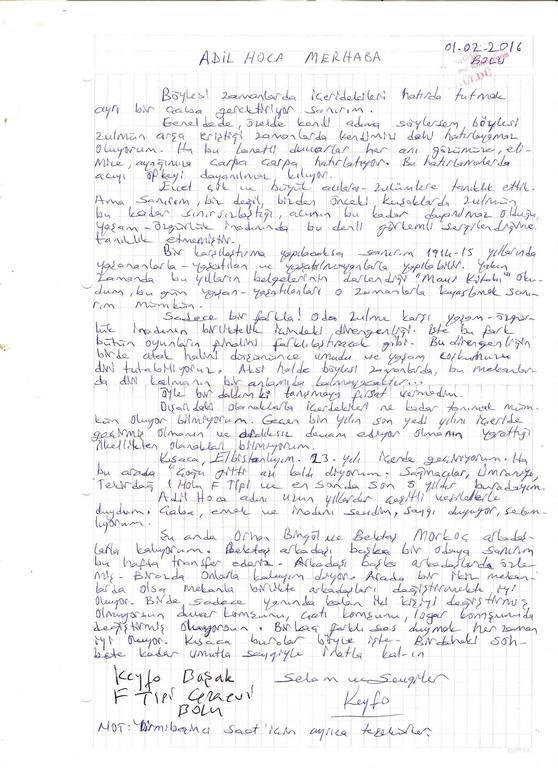 01-02-2016
BOLU
ADİL HOCA MERHABA
Böylesi zamanlarda içeridekileri hatırda tutmak
ayrı bir çaba gerektiriyor sanırım.
Genelde de, özelde kendi adıma söylersem, böylesi
zulmün arşa zamanlarda kendimizi dahi
oluyorum. Ha bu lanetli duvarlar her anı gözümüze, eli-
mize, ayağımıza çarpa çarpa hatırlatıyor. Bu hatırlamalarda
acıyı öfkeyi dayanılmaz kılıyor.
Evet çok ve büyük acılara-zulümlere tanıklık ettik.
Ama sanırım, biz değil, bizden önceki kuşaklarda zulmün
bu kadar sınırsızlaştığı, acının bu kadar dayanılmaz olduğu,
yaşam-özgürlük inadının bu denli görkemli sergilendiğine
tanıklık etmemiştir.
Bir karşılaştırma yapılacaksa sanırım 1914-15 yıllarında
yaşananlarla-yaşatılan ve yapılabilir. Yakın
zamanda bu yılların belgelerinin derlendiği "Mavi Kitabı" oku-
dum, bu gün yaşan-yaşatılanları o zamanlarla kıyaslamak sanı-
rım mümkün.
Sadece bir farkla! Oda zulme karşı yaşam-özgür-
lük inadının birliktelik içindeki direngenliği. İşte bu fark
bütün oyunların finalini farklılaştıracak gibi. Bu direngenliğin
birde atak halini düşününce umudu ve yaşam coşkumuzu
diri tutabiliyoruz. Aksi halde böylesi zamanlarda, bu mekanlar-
da diri kalmanın bir anlamıda kalmayacaktır...
Öyle bir daldım ki tanışmaya fırsat vermedim.
Dışarıdaki olanaklarla içerdekileri ne kadar tanımak müm-
kün oluyor bilmiyorum. Geçen bin yılın son yedi yılını içeride
geçirmiş olmanın ve devam ediyor olmanın yarattığı
olanakları bilmiyorum.
Kısaca, Elbistanlıyım. 23. yılı içerde geçiriyorum. Ha
bu arada "çoğu gitti azı kaldı" diyorum. Sağmacılar, Ümraniye,
Tekirdağ 1 Nolu F Tipi ve en sonda son 5 yıldır buradayım.
Adil Hoca adını uzun yıllardır çeşitli vesilelerle
duydum. Çaba, emek ve inadını sevdim, saygı duyuyor, selam-
lıyorum.
Şu anda Orhan Bingöl ve Bektaş arkadaş-
larla kalıyorum. Bektaş arkadaşı başka bir odaya sanırım
bu hafta transfer ederiz. Arkadaşı başka arkadaşlarda özle-
miş. Birazda onlarla kalayım diyor. Arada bir mekan-
larda olsa mekanla birlikte arkadaşları değiştirmekte iyi
oluyor. Birde sadece yanında kalan iki kişiyi değiştirmiş
olmuyorsun duvar komşunu, çatı komşunu, logar komşunuda
değiştirmiş oluyorsun. Birkaç farklı ses duymak her zaman
iyi oluyor. Kısaca buralar böyle işte. Birdahaki soh-
bete kadar umutla sevgiyle inatla kalın
Selam ve Sevgiler
Keyfo
Keyfo Başak
F Tipi Cezaevi
BOLU
NOT: Yirmibeşinci saat için ayrıca teşekkürler.